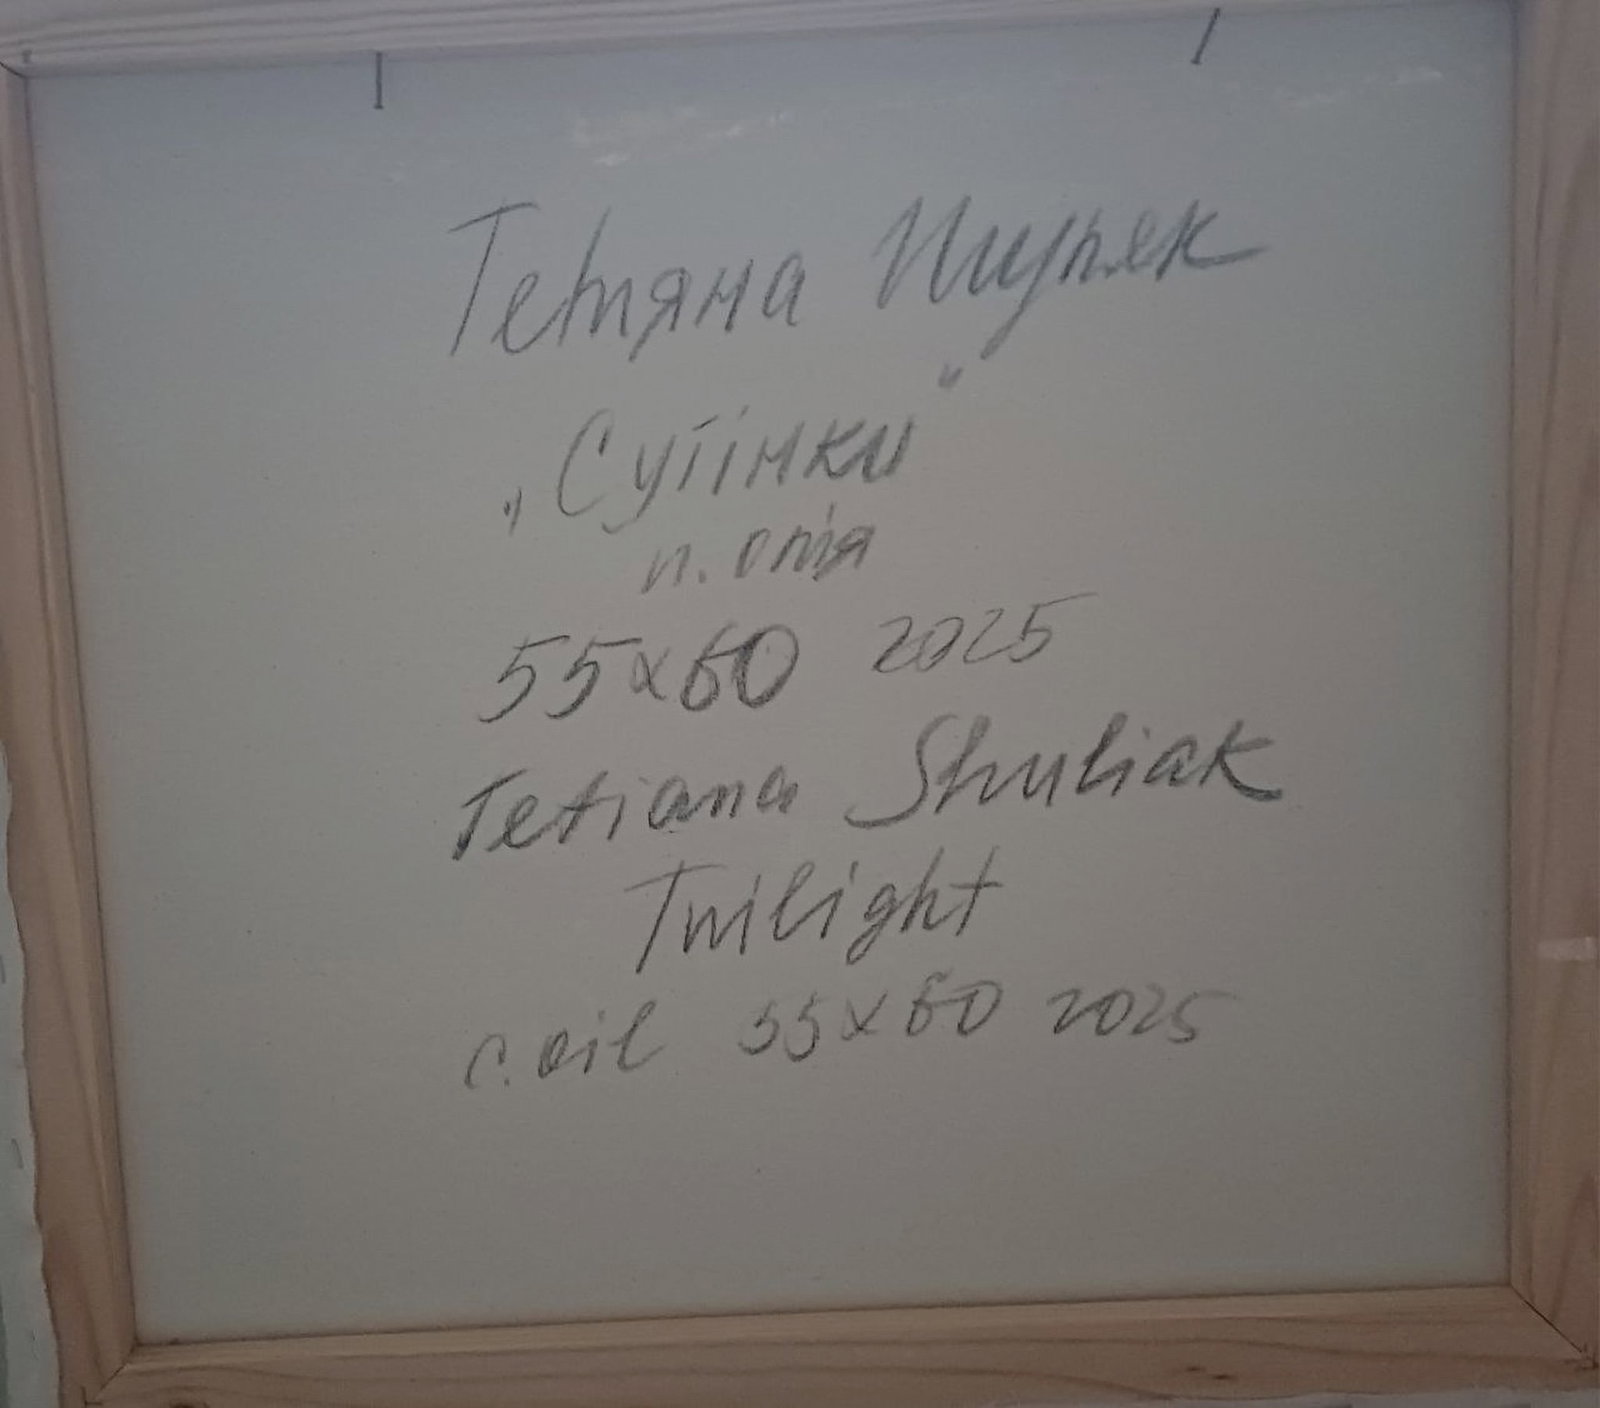 Тетяна Шуляк
„Сутінки"
п. олія
55x60 2025
Tetiana Shuliak
Twilight
c. oil 55x60 2025